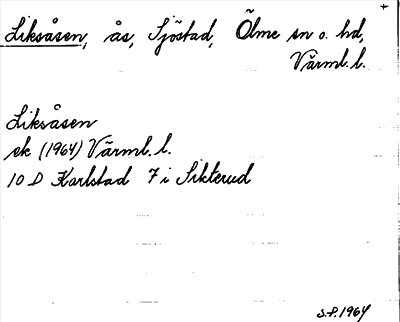 +
Liksåsen, ås, Sjöstad, Ölme sn o. hd,
Värml. l.
Liksåsen
ek (1964) Värml. l.
10 D Karlstad 7 i Sikterud
S.P. 1964